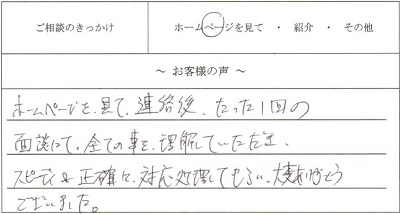 ご相談のきっかけ
ホームページを見て ・ 紹介 ・ その他
～ お客様の声 ～
ホームページを、見て、連絡後、たった1回の
面談にて、全ての事を、理解していただき、
スピーディ&正確に、対応処理してもらい、大変ありがとう
ございました。